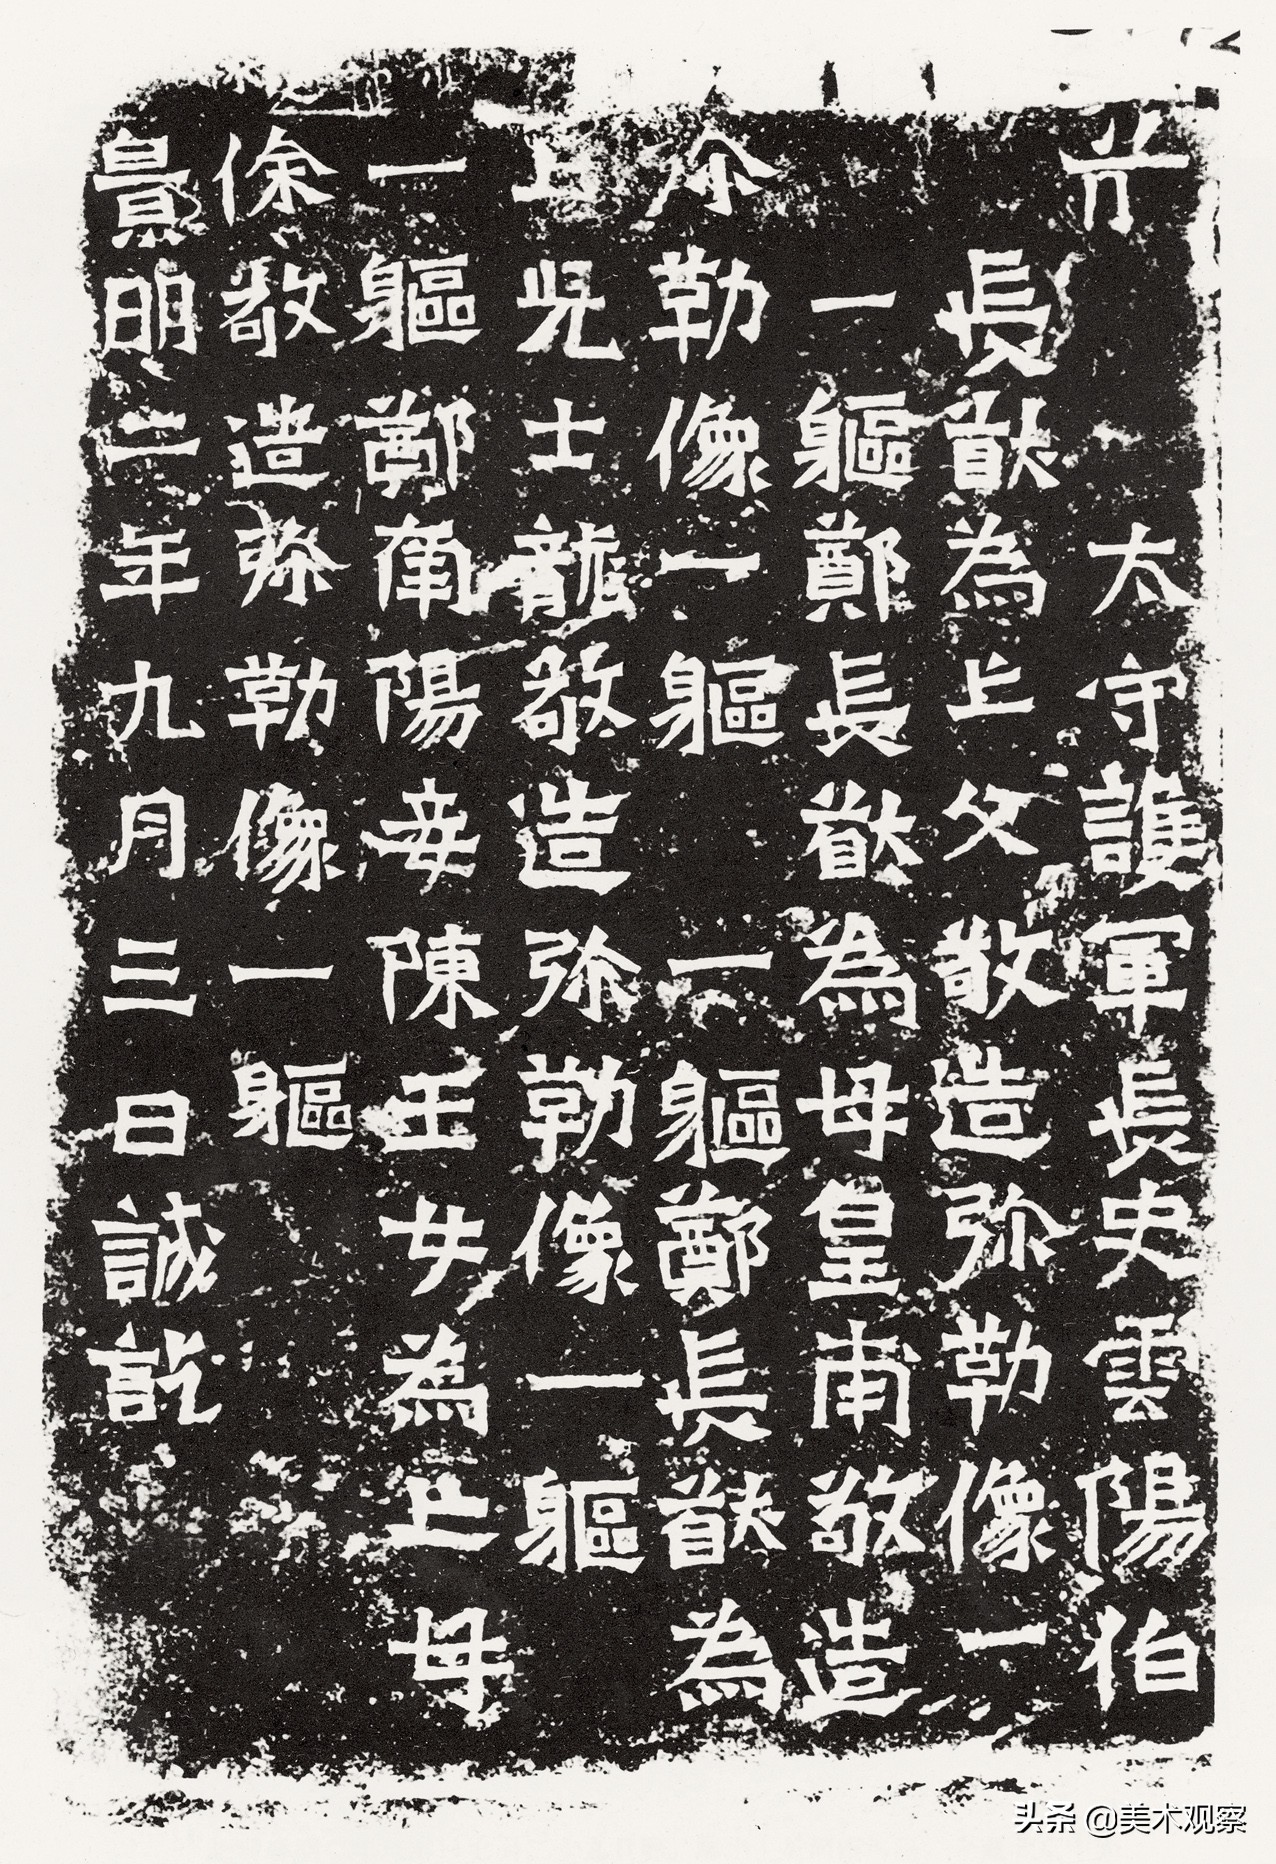 前 太守護軍長史雲陽伯
長猷為亡父敬造弥勒像一
一軀鄭長猷為母皇甫敬造
弥勒像一軀 一軀鄭長猷為
亡兒士龍敬造弥勒像一軀
一軀鄭南陽妾陳玉女為亡母
徐敬造弥勒像一軀
景明二年九月三日誡訖
头条 @美术观察